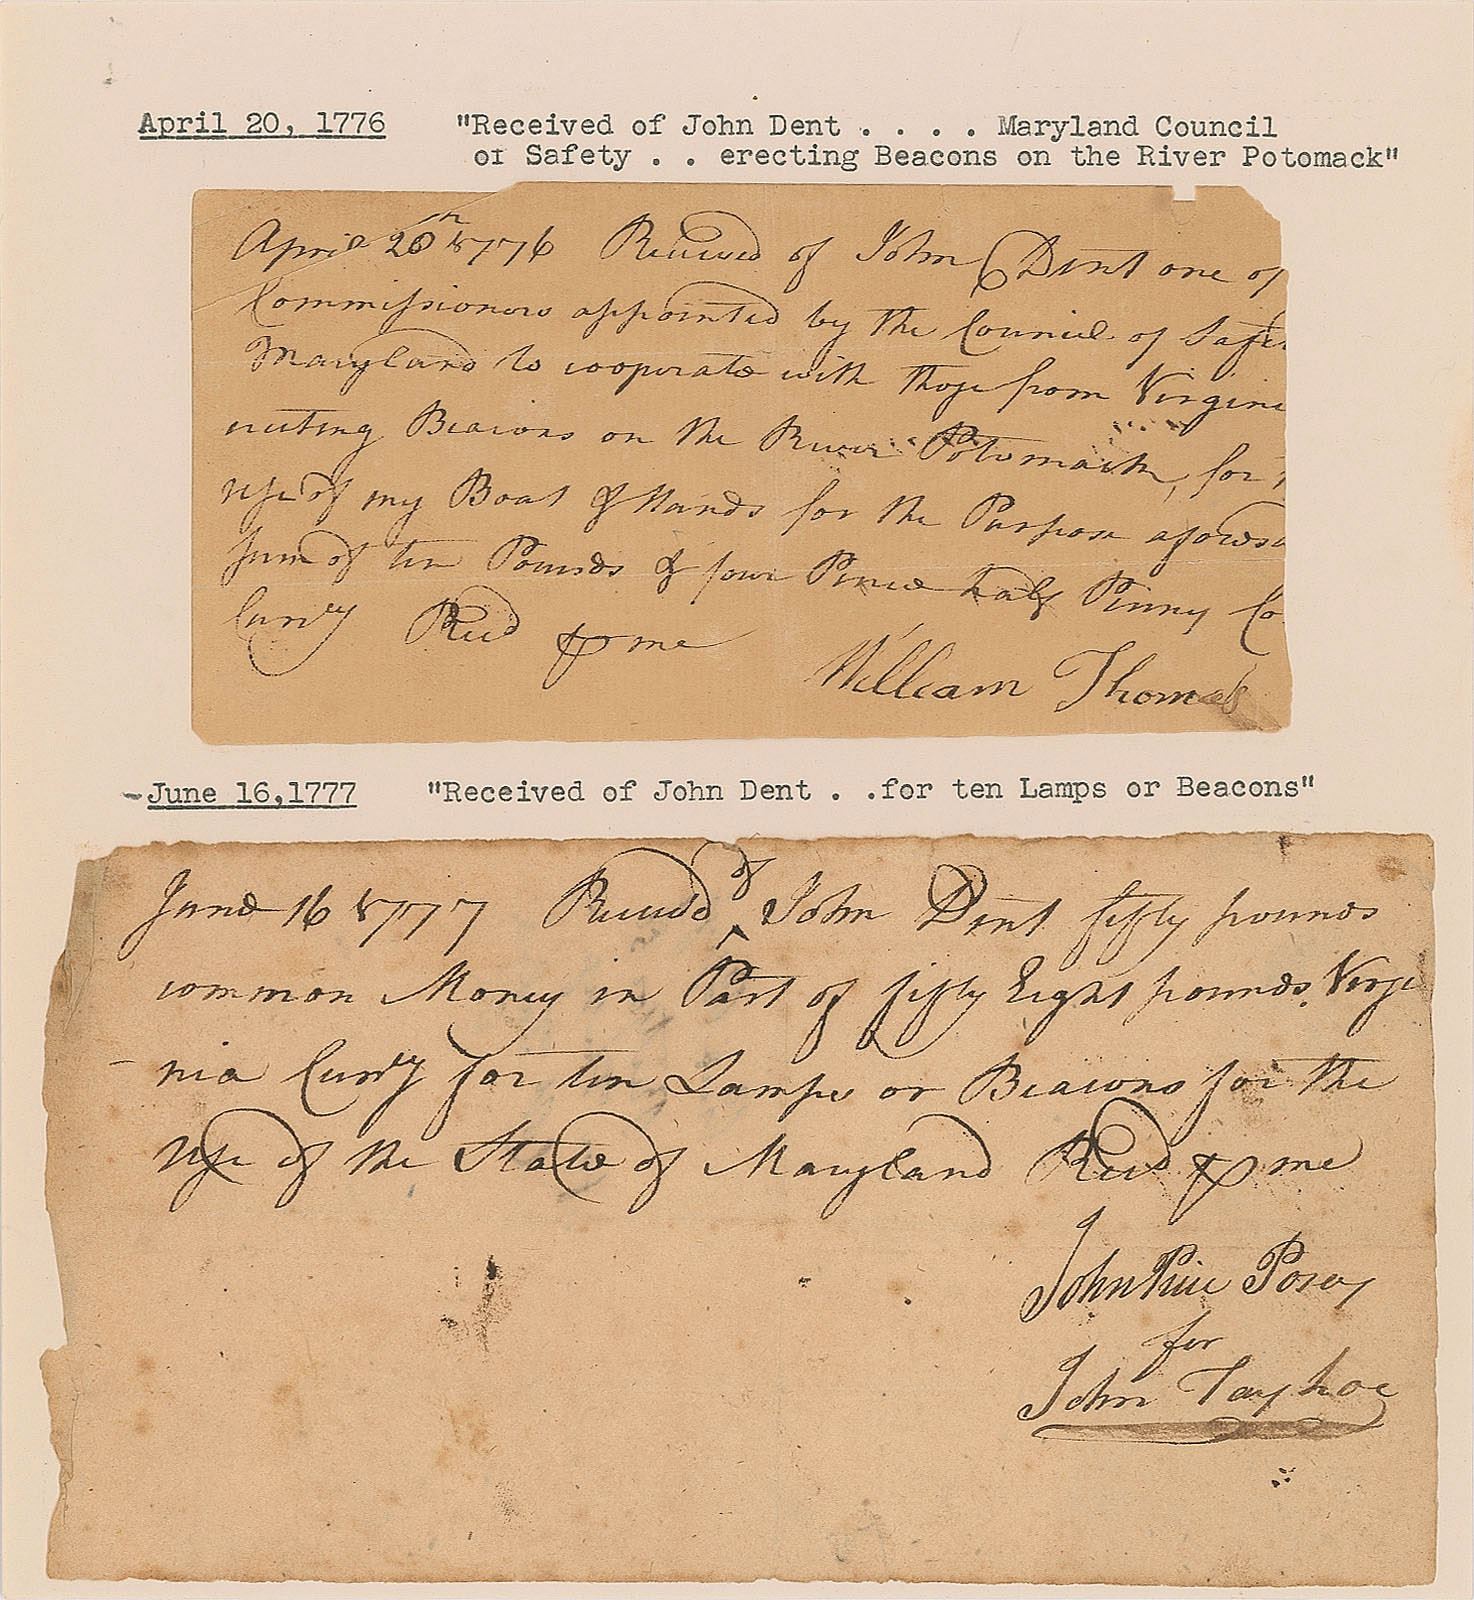 April 20, 1776 "Received of John Dent . . . . Maryland Council
of Safety . . erecting Beacons on the River Potomack"
April 20th 1776 Received of John Dent one of
Commissioners appointed by the Council of Safe
Maryland to cooperate with those from Virgini
erecting Beacons on the River Potomack, for
use of my Boat & Hands for the Purpose aforesa
sum of ten Pounds & four Pence half Penny Co
Curr'y Recd me
William Thomas
June 16,1777 "Received of John Dent . .for ten Lamps or Beacons"
June 16 1777 Receivd of John Dent fifty pounds
common Money in Part of fifty Eight pounds Virgi
nia Curr'y for ten Lamps or Beacons for the
use of the State of Maryland Recd me
John Price Posey
for
John Tayloe